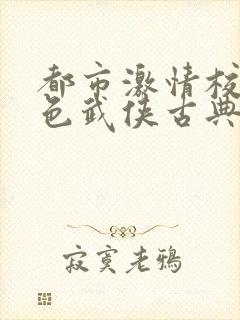 都市激情校
色武侠古典
寂寞老鸦